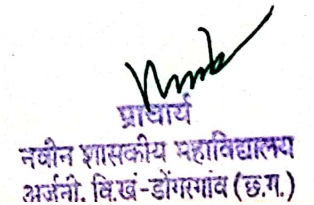 प्राचार्य
नवीन शासकीय महाविद्यालय
अर्जुनी, वि.खं-डोंगरगांव (छ.ग.)